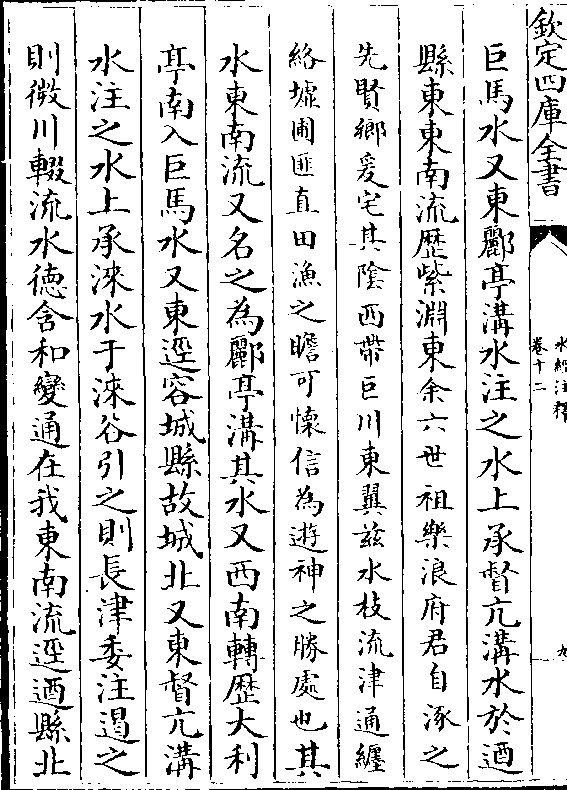 欽定四庫全書
水經注釋
卷十二
九
巨馬水又東酈亭溝水注之水上承督亢溝水於迺
縣東東南流歷紫淵東余六世祖樂浪府君自涿之
先賢鄉爰宅其陰西帶巨川東翼茲水枝流津通纏
絡墟圃匪直田漁之贍可懷信為遊神之勝處也其
水東南流又名之為酈亭溝其水又西南轉歷大利
亭南入巨馬水又東逕容城縣故城北又東督亢溝
水注之水上承淶水于淶谷引之則長津委注遏之
則微川輟流水德含和變通在我東南流逕迺縣北